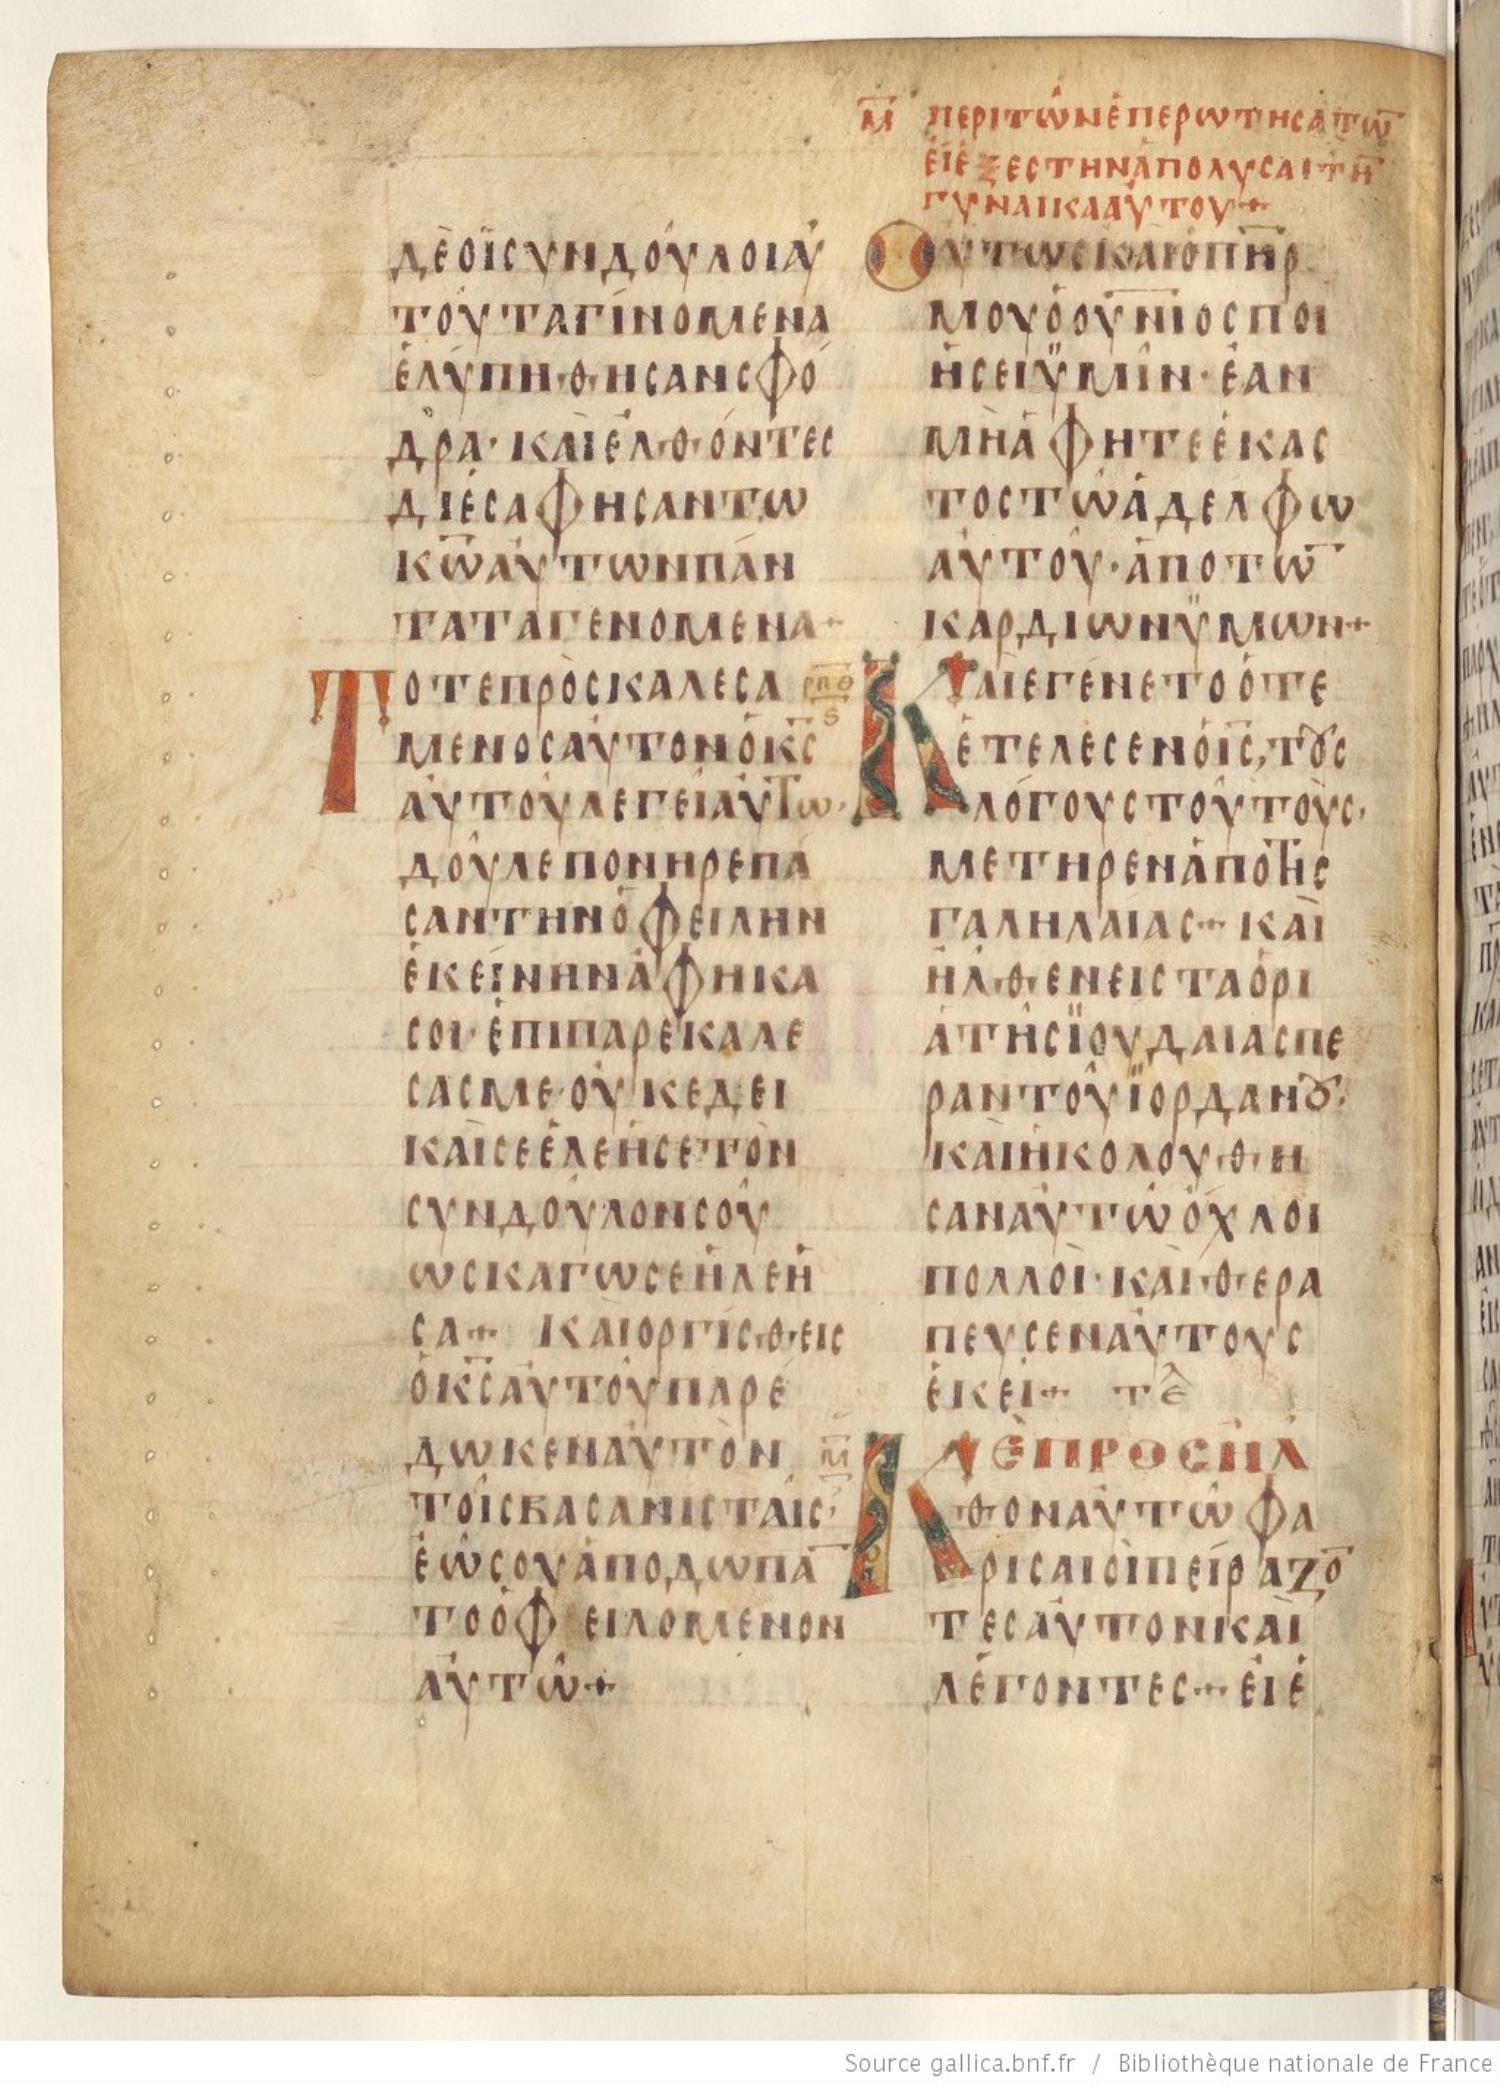 Μ̅ ΠΕΡΙΤῶΝἐΠΕΡΩΤΗСΑΤΩ̅
ΕἰἔΞΕСΤΗΝἀΠΟΛΥСΑΙΤΗ̅
ΓΥΝΑΙΚΑΑὐΤΟΥ+
ΔὲΟἱСΥΝΔΟΎΛΟΙΑὐ
ΤΟΎΤΑΓΙΝΟΜΕΝΑ
ἐΛΥΠΗΘΗСΑΝСΦΌ
ΔΡΑ· ΚΑὶἐΛΘΌΝΤΕС
ΔΙΕСΑΦΗСΑΝΤΩ
ΚΩ̅ΑὐΤΩΝΠΆΝ
ΤΑΤΑΓΕΝΟΜΕΝΑ+
ΤΟΤΕΠΡΟСΚΑΛΕСΑ
ΜΕΝΟСΑὐΤΟΝὁΚС̅
ΑὐΤΟΥΛΕΓΕΙΑὐΤΩ·
ΔΟΎΛΕΠΟΝΗΡΕΠΆ
СΑΝΤΗΝὀΦΕΙΛΗΝ
ἐΚΕΊΝΗΝἀΦΗΚΑ
СΟΙ· ἐΠΙΠΑΡΕΚΑΛΕ
СΑСΜΕ· ΟὐΚΕΔΕΙ
ΚΑὶСΕἐΛΕΗСΕΤὸΝ
СΥΝΔΟΎΛΟΝСΟΥ
ΩСΚΑΓΩСΕἠΛΕΗ
СΑ+ ΚΑΙΟΡΓΙСΘΕΙС
ὁΚС̅ΑὐΤΟΥΠΑΡΕ
ΔΩΚΕΝΑὐΤὸΝ
ΤΟῖСΒΑСΑΝΙСΤΑῖС·
ἐΩСΟΥἀΠΟΔΩΠΑ̅
ΤΟὀΦΕΙΛΟΜΕΝΟΝ
ΑὐΤῶ+
ΟΥΤΩСΚΑΙΟΠΗ̅Ρ
ΜΟΥὁΟΥ̅ΝΙΟСΠΟΙ
ἠСΕΙΫΜΙΝ· ἐΑΝ
ΜΗἀΦΗΤΕἐΚΑС
ΤΟСΤῶἀΔΕΛΦΩ
ΑὐΤΟΥ· ἀΠΟΤΩ̅
ΚΑΡΔΙΩΝΫΜΩΝ+
ΡΟΘ
Ϛ
ΚΑΙἐΓΕΝΕΤΟὅΤΕ
ἐΤΕΛΕСΕΝὁΙС̅, ΤȣС
ΛΌΓΟΥСΤΟΎΤΟΥС·
ΜΕΤΗΡΕΝἀΠΟΤΗС
ΓΑΛΗΛΑΊΑС+ ΚΑὶ
ἦΛΘΕΝΕΙСΤΑὅΡΙ
ΑΤΗСΪΟΥΔΑΙΑСΠΕ
ΡΑΝΤΟΥΪΟΡΔΑΝȣ·
ΚΑΙἠΚΟΛΟΥΘΗ
СΑΝΑὐΤῶὄΧΛΟΙ
ΠΟΛΛΟΙ· ΚΑΙΘΕΡΑ
ΠΕΥСΕΝΑὐΤΟΥС
ἐΚΕΙ+ ΤΕ
Μ̅ ΚΑΙΠΡΟСΗΛ
ΘΟΝΑὐΤῶΦΑ
ΡΙСΑΙΟΙΠΕΙΡΑΖΟ̅
ΤΕСΑὐΤΟΝΚΑΙ
ΛΕΓΟΝΤΕС+ Εἰἔ
Source gallica.bnf.fr / Bibliothèque nationale de France